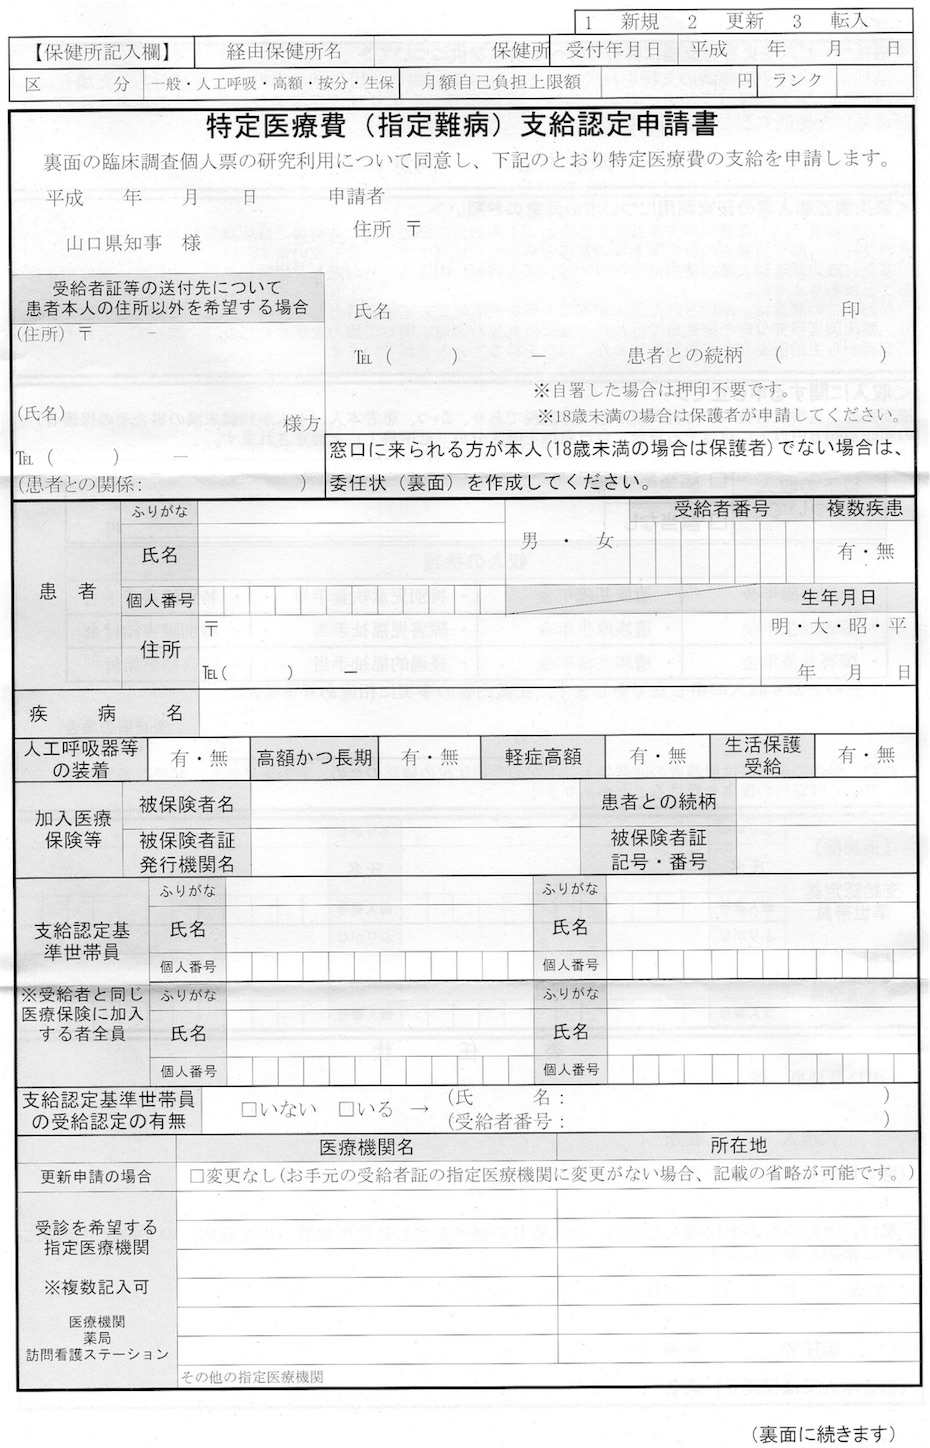 1 新規 2 更新 3 転入
【保健所記入欄】 経由保健所名 保健所 受付年月日 平成 年 月 日
区 分 一般・人工呼吸・高額・按分・生保 月額自己負担上限額 円 ランク
特定医療費（指定難病）支給認定申請書
裏面の臨床調査個人票の研究利用について同意し、下記のとおり特定医療費の支給を申請します。
平成 年 月 日 申請者
住所 〒
山口県知事 様
受給者証等の送付先について
患者本人の住所以外を希望する場合
(住所) 〒 －
氏名 印
℡ ( ) － 患者との続柄 ( )
※自署した場合は押印不要です。
※18歳未満の場合は保護者が申請してください。
(氏名)
様方
℡ ( ) －
(患者との関係： )
窓口に来られる方が本人(18歳未満の場合は保護者)でない場合は、
委任状（裏面）を作成してください。
患 者
ふりがな
氏名
男 ・ 女
受給者番号
複数疾患
有・無
個人番号
生年月日
明・大・昭・平
年 月 日
住所
〒
℡( ) －
疾 病 名
人工呼吸器等
の装着
有・無
高額かつ長期
有・無
軽症高額
有・無
生活保護
受給
有・無
加入医療
保険等
被保険者名
患者との続柄
被保険者証
発行機関名
被保険者証
記号・番号
支給認定基
準世帯員
※受給者と同じ
医療保険に加入
する者全員
ふりがな ふりがな
氏名 氏名
個人番号 個人番号
ふりがな ふりがな
氏名 氏名
個人番号 個人番号
支給認定基準世帯員
の受給認定の有無
□いない □いる →
(氏 名： )
(受給者番号： )
医療機関名 所在地
更新申請の場合 □変更なし(お手元の受給者証の指定医療機関に変更がない場合、記載の省略が可能です。)
受診を希望する
指定医療機関
※複数記入可
医療機関
薬局
訪問看護ステーション
その他の指定医療機関
（裏面に続きます）